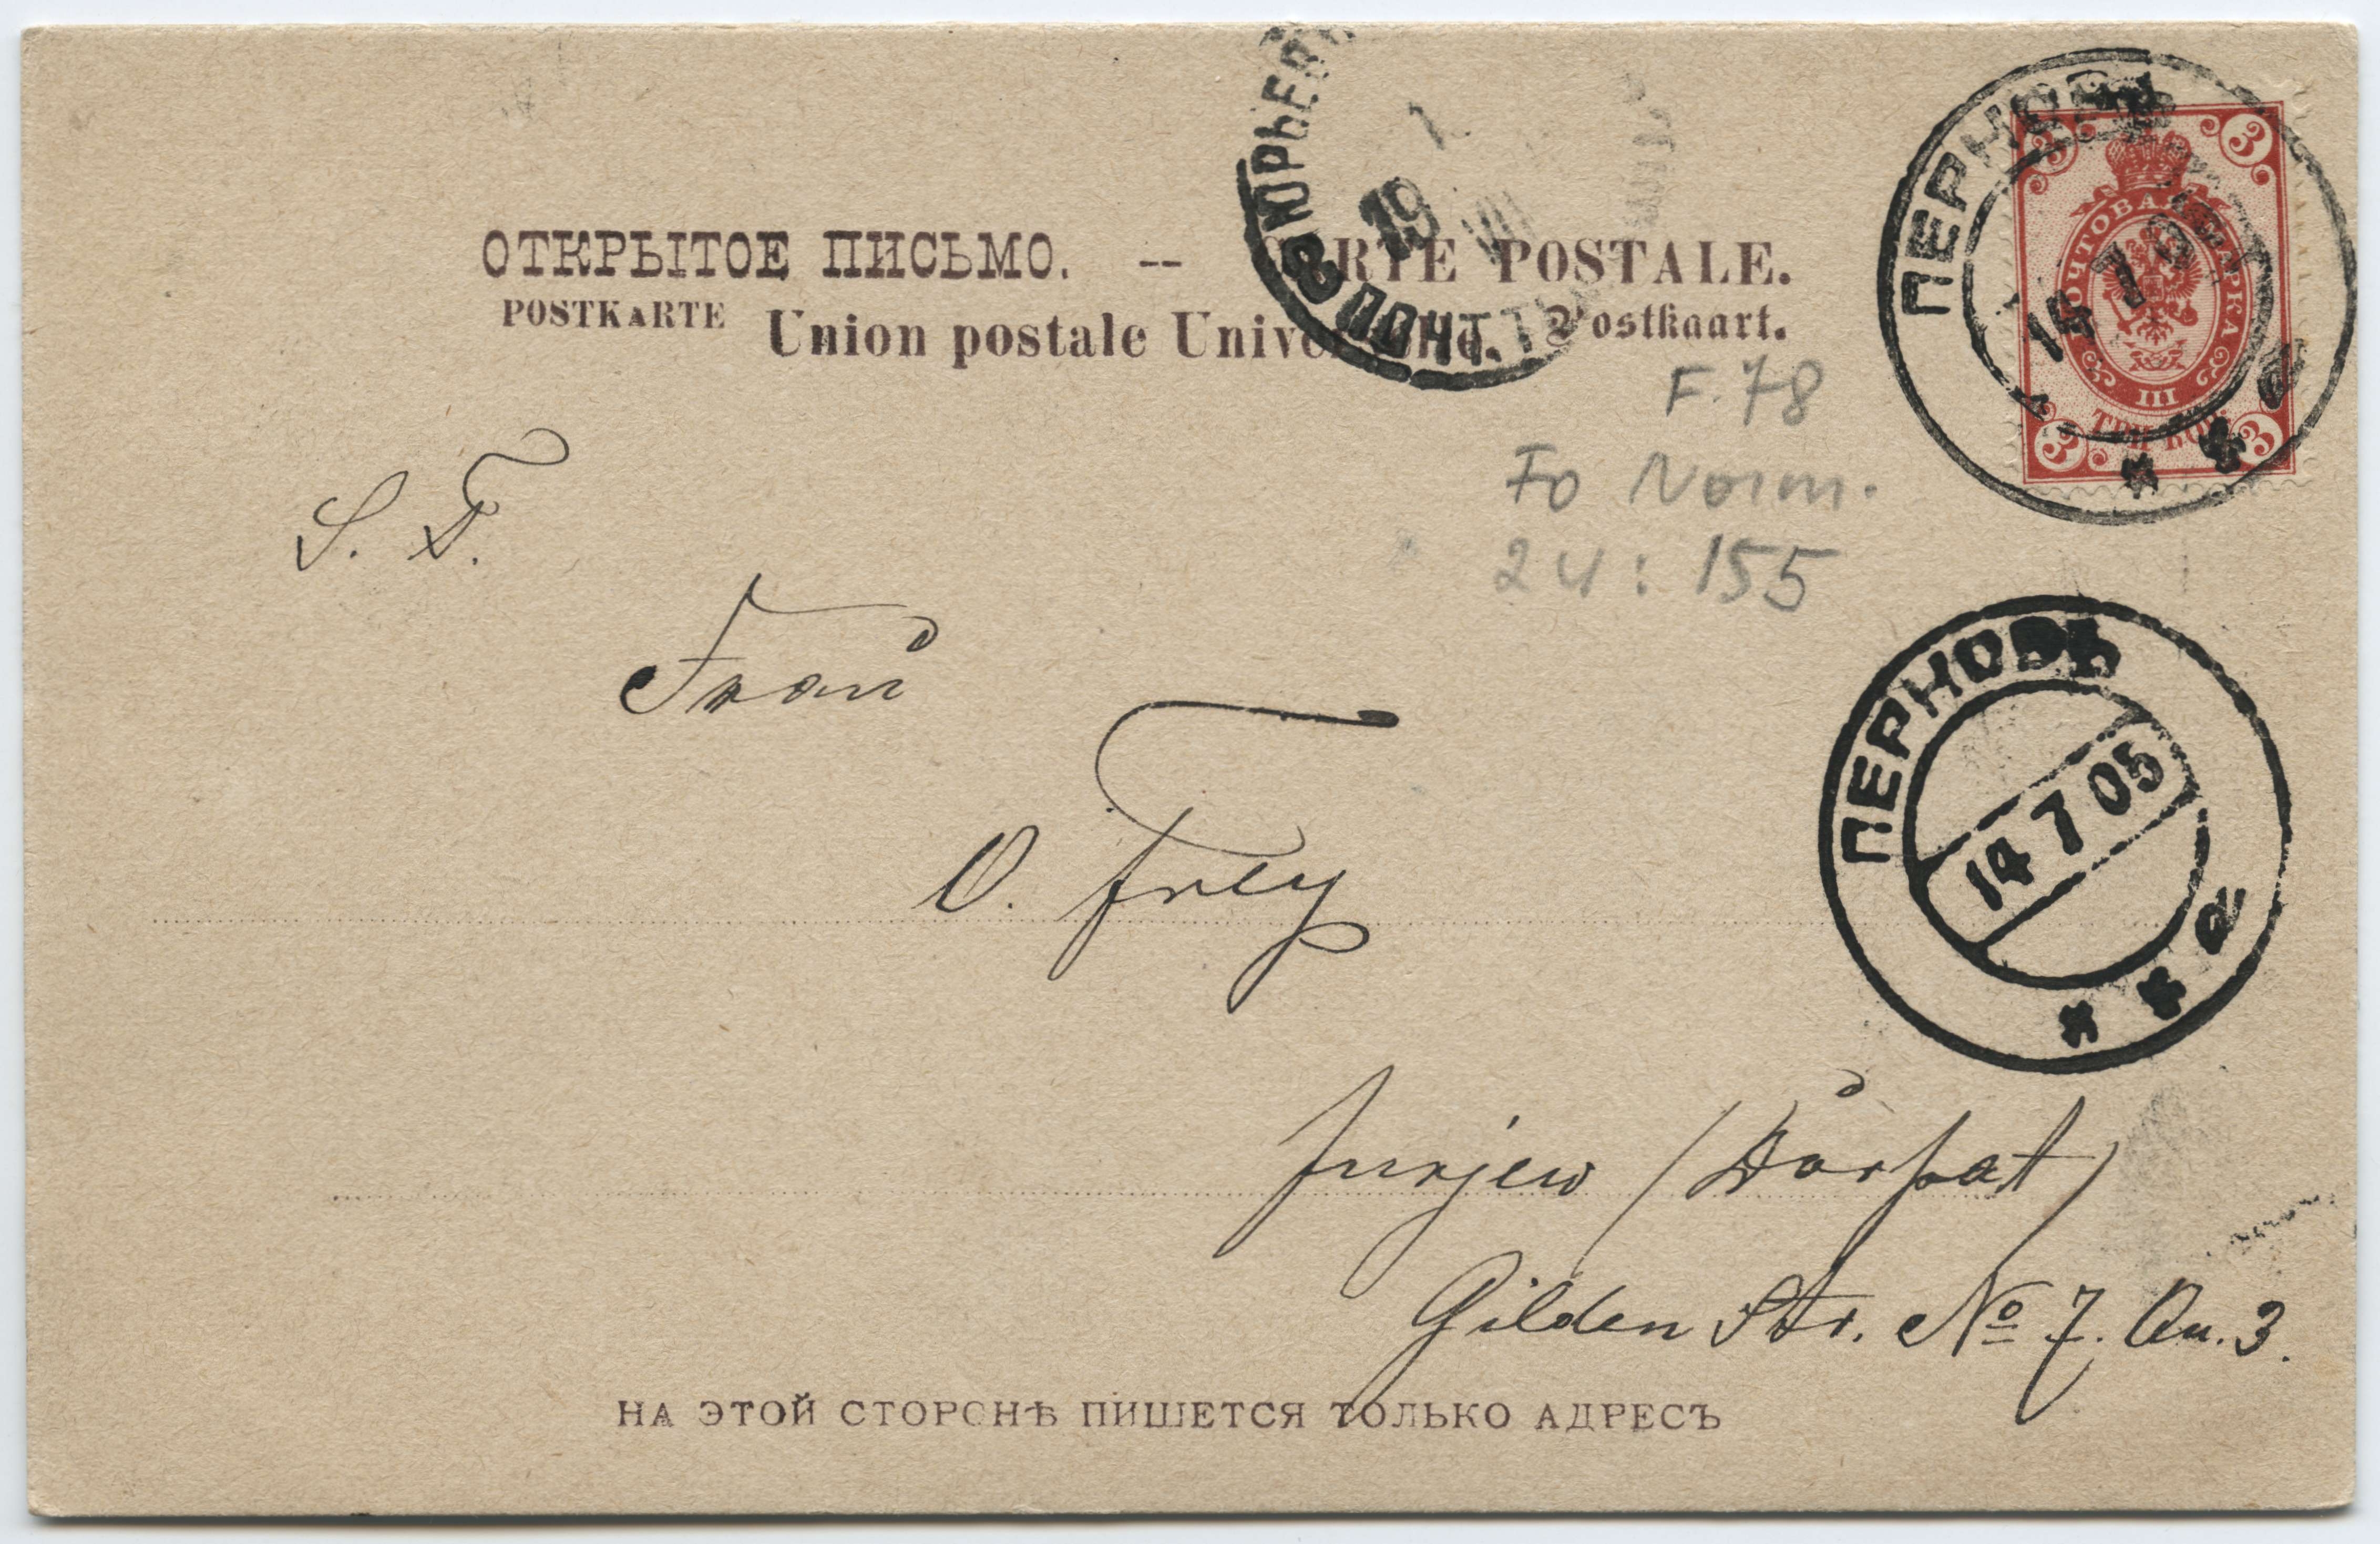 ОТКРЫТОЕ ПИСЬМО. -- CARTE POSTALE.
POSTKARTE Union postale Universelle. Postkaart.
ЮРЬЕВ
19
ПОЧТ.
ПЕРНОВЪ
14 7
* * а
ПОЧТОВАЯ МАРКА
3 3
III
ТРИ КОП.
3 3
F. 78
Fo Norm.
24 : 155
S. T.
Frau
O. Frey
ПЕРНОВЪ
14 7 05
* * а
Jurjew (Dorpat)
Gilden Str. No 7. Qu. 3.
НА ЭТОЙ СТОРОНѢ ПИШЕТСЯ ТОЛЬКО АДРЕСЪ